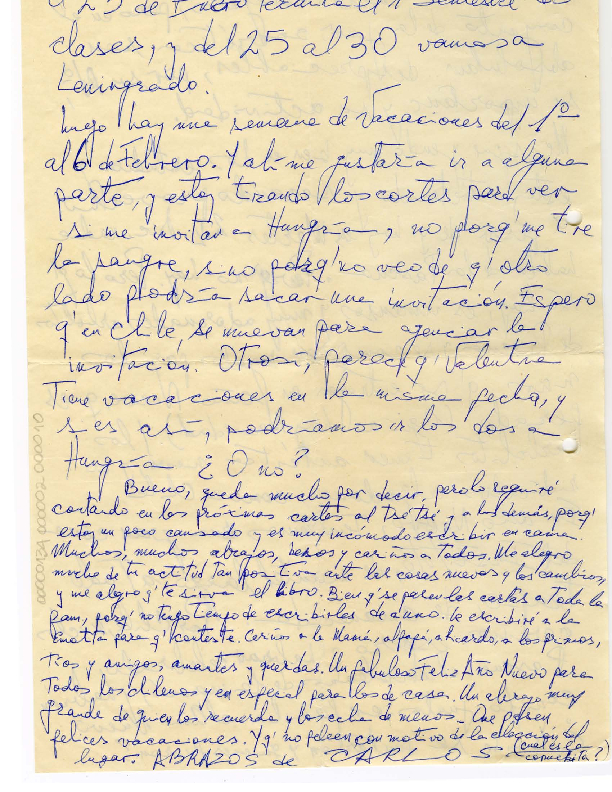 25 de Enero termina el 1º semestre de
clases, y del 25 al 30 vamos a
Leningrado.
Luego hay una semana de Vacaciones del 1º
al 6 de Febrero. Y ahí me gustaría ir a alguna
parte, y estoy tirando los cortes para ver
si me invitan a Hungría, no porq' me tire
la sangre, sino porq' no veo de q' otro
lado podría sacar una invitación. Espero
q' en Chile, se muevan para agenciar la
invitación. Otrosí, parece q' Valentina
Tiene vacaciones en la misma fecha, y
si es así, podríamos ir los dos a
Hungría ¿O no?
Bueno, queda mucho por decir, pero lo seguiré
contando en las próximas cartas al Tsé tsé y a los demás, porq'
estoy un poco cansado y es muy incómodo escribir en cama.
Muchos, muchos abrazos, besos y cariños a Todos. Me alegro
mucho de tu actitud tan positiva ante las cosas nuevas y los cambios,
y me alegro q' te sirva el libro. Bien q' se pasen las cartas a toda la
fam, porq' no tengo tiempo de escribirles de a uno. Le escribiré a la
para q' conteste. Cariños a la Mamá, al papá, a , a los primos,
tíos y amigos, amantes y queridas. Un fabuloso Feliz Año Nuevo para
Todos los chilenos y en especial para los de casa. Un abrazo muy
grande de quien los recuerda y los echa de menos. Que pasen
felices vacaciones. Y q' no peleen con motivo de la elección del
lugar. ABRAZOS de CARLOS (cual es la
?)
0000013A 000002 000010